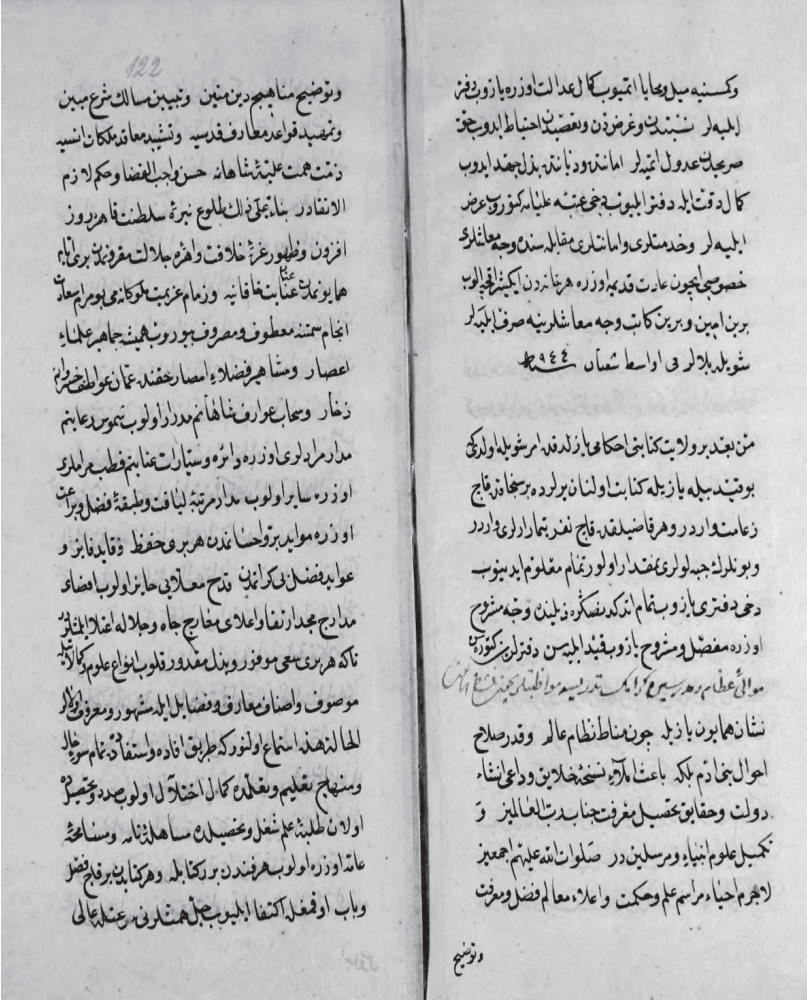 وكسنه‌يه ميل و محابا اتميوب كمال عدالت اوزره يازوب دفتر
ايليه‌لر نسبتدن و غرضدن و تعصبدن احتياط ايدوب حق
صريحدن عدول اتميه‌لر امانتده و ديانتده بذل جهد ايدوب
كمال دقت ايله دفتر ايليوب دخى عتبه عليامه كتوروب عرض
ايليه‌لر وخدمتلرى و امانتلرى مقابله سنده وجه معاشلرى
خصوصى ايچون عادت قديمه اوزره هر خانه‌دن ايكيشر اقچه الوب
برين امين و برين كاتب وجه معاشلرينه صرف ايليه‌لر
شويله بلالر فى اواسط شعبان سنه ٩٤٤
من بعد بر ولايت كتابتى احكامى يازلدقده امر شويله اولدى كه
بوقيد بيله يازيله كتابت اولنان يرلرده بر سنجاقده قاچ
زعامت واردر و هر قاضيلقده قاچ نفر تيمارلرى واردر
و بونلرك جبه‌لولرى نمقدار اولور تمام معلوم ايدينوب
دخى دفترى يازوب تمام اتدكدنصكره ذيلنده وجه مشروح
اوزره مفصل و مشروح يازوب قيد ايليه‌سن دفترلرين كتوره‌سن
موالئ عظام و مدرسين كرامك تدريسه مواظبتلرى ايچون
نشان همايون يازيله چون مناط نظام عالم و قدر صلاح
احوال بنى آدم بلكه باعث املاء نسخه خلايق و داعى انشاء
دولت و حقايق تحصيل معرفت جناب رب العالمين و
تكميل علوم انبياء و مرسلين در صلوات الله عليهم اجمعين
لاجرم احياء مراسم علم و حكمت و اعلاء معالم فضل و معرفت
وتوضيح
122
وتوضيح مناهج دين متين و تبيين مسالك شرع مبين
وتمهيد قواعد معارف قدسيه و تشييد معاقد ملكات انسيه
ذمت همت عليۀ شاهانه حسن واجب القضا و حكم لازم
الانقادر بناء على ذلك طلوع نيرۀ سلطنت قاهره روز
افزون و ظهور غرۀ خلافت واهره جلالت مقروندن برى
همايونمدن عنايت خاقانيه و زمام عزيمت ملوكانه‌مى بو مرام سعادت
انجام سمتنه معطوف و مصروف بيوروب هميشه جماهير علماء
اعصار و مشاهير فضلاء امصار حقنده عمان عواطف خسروانم
زخار و سحاب عوارف شاهانم مدرار اولوب شموس رعايتم
مدار مرادلرى اوزره دائره و سيارات عنايتم قطب مراملرى
اوزره ساير اولوب مدار مرتبۀ لياقت و طبقۀ فضل و براعت
اوزره موايد بر و احسانمدن هر برى حفيظ و قايد فايز و
عوايد فضل بى كرانمدن قدح معلايى حايز اولوب اقصاى
مدارج مجدار تقا و اعلاى معارج جاه و جلاله اعتلا ايتمشلردر
تاكه هر برى سعى موفور و بذل مقدور قلوب انواع علوم و كمالاتله
موصوف و اصناف معارف و فضايل ايله مشهور و معروف اوله‌لر
الحالة هذه استماع اولنور كه طريق افاده و استفاده تمام
و منهاج تعليم و تعلمده كمال اختلال اولوب صدد تحصيلده
اولان طلبۀ علم شغل و تحصيلده مساهلۀ تامه و مسامحۀ
عامه اوزره اولوب هر فندن بر كتابله و هر كتابدن بر قاچ فصل
و باب اوقمغله اكتفا ايليوب جل همتلرنى مرتبۀ عالى